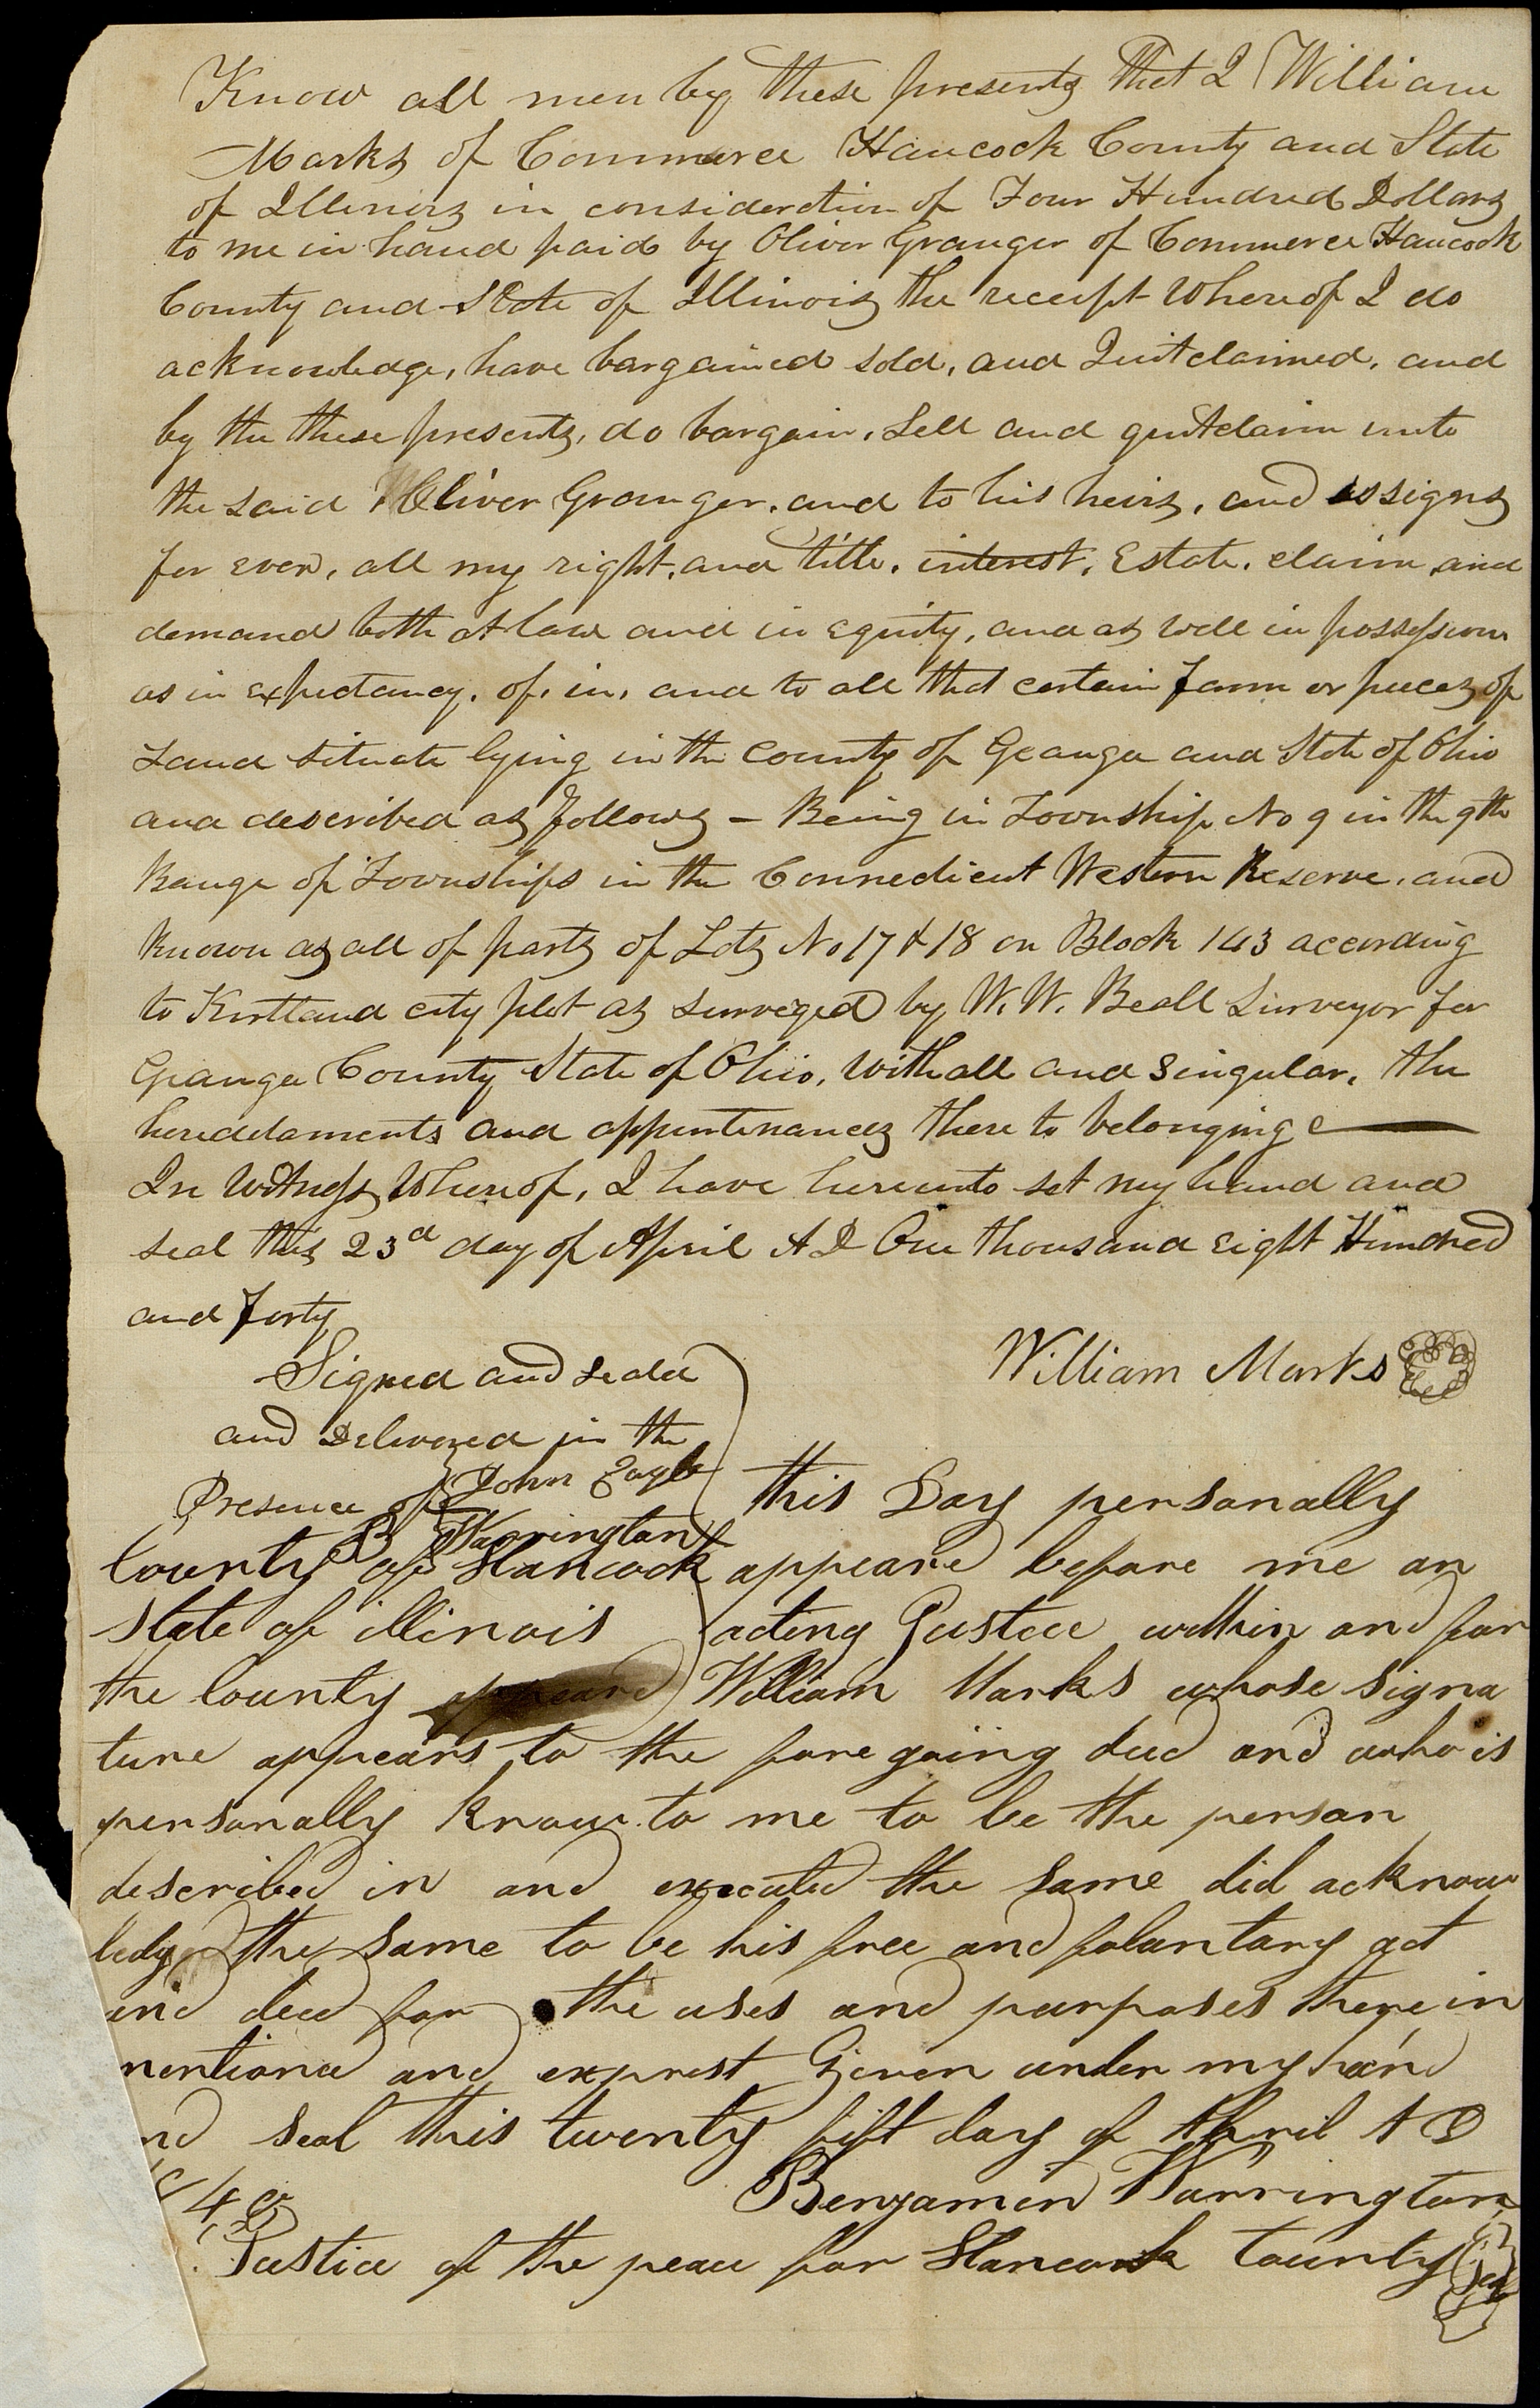 Know all men by these presents That I William
Marks of Commerce Hancock County and State
of Illinois in consideration of Four Hundred Dollars
to me in hand paid by Oliver Granger of Commerce Hancock
County and State of Illinois the receipt Whereof I do
acknowledge, have bargained sold, and Quitclaimed, and
by the these presents, do bargain, Sell and quitclaim unto
the said Oliver Granger, and to his heirs, and assigns
for ever, all my right, and title, interest, Estate, claim, and
demand both at law and in equity, and as well in possession
as in expectancy, of, in, and to all that certain farm or pieces of
Land situate lying in the County of Geauga and State of Ohio
and described as follows – Being in Township No 9 in the 9th
Range of Townships in the Connedicut Western Reserve, and
known as all of parts of Lots No 17 & 18 on Block 143 according
to Kirtland city plat as surveyed by W. W. Beall Surveyor for
Geauga County State of Ohio, with all and singular, the
heredaments and appurtenances there to belonging
In Witness Whereof, I have hereunto set my hand and
seal this 23d day of April A D One thousand eight Hundred
and forty
William Marks
Signed and seald
and Delivered in the
Presence of John Eagle
B Warrington
this Day personally
County of Hancock appeard before me an
state of illinois acting Justice within and for
the County appeard William Marks whose signa
ture appears to the fore going deed and who is
personally know to me to be the person
described in and executed the same did acknow
ledge the same to be his free and folantary act
and deed for the uses and purposes there in
mentiond and exprest Given under my hand
nd seal this twenty fift day of April A D
1840
Benjamin Warrington
Justice of the peace for Hancock County Seal